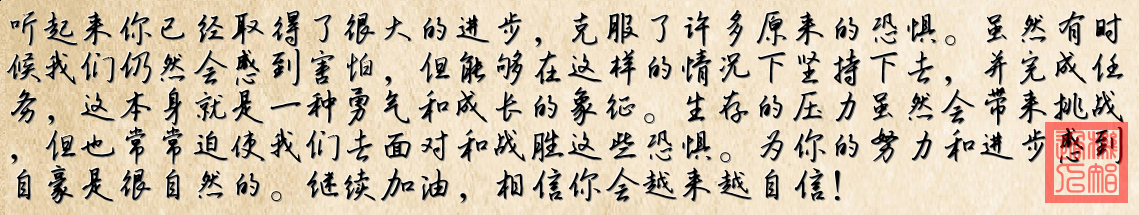 听起来你已经取得了很大的进步，克服了许多原来的恐惧。虽然有时
候我们仍然会感到害怕，但能够在这样的情况下坚持下去，并完成任
务，这本身就是一种勇气和成长的象征。生存的压力虽然会带来挑战
，但也常常迫使我们去面对和战胜这些恐惧。为你的努力和进步感到
自豪是很自然的。继续加油，相信你会越来越自信！